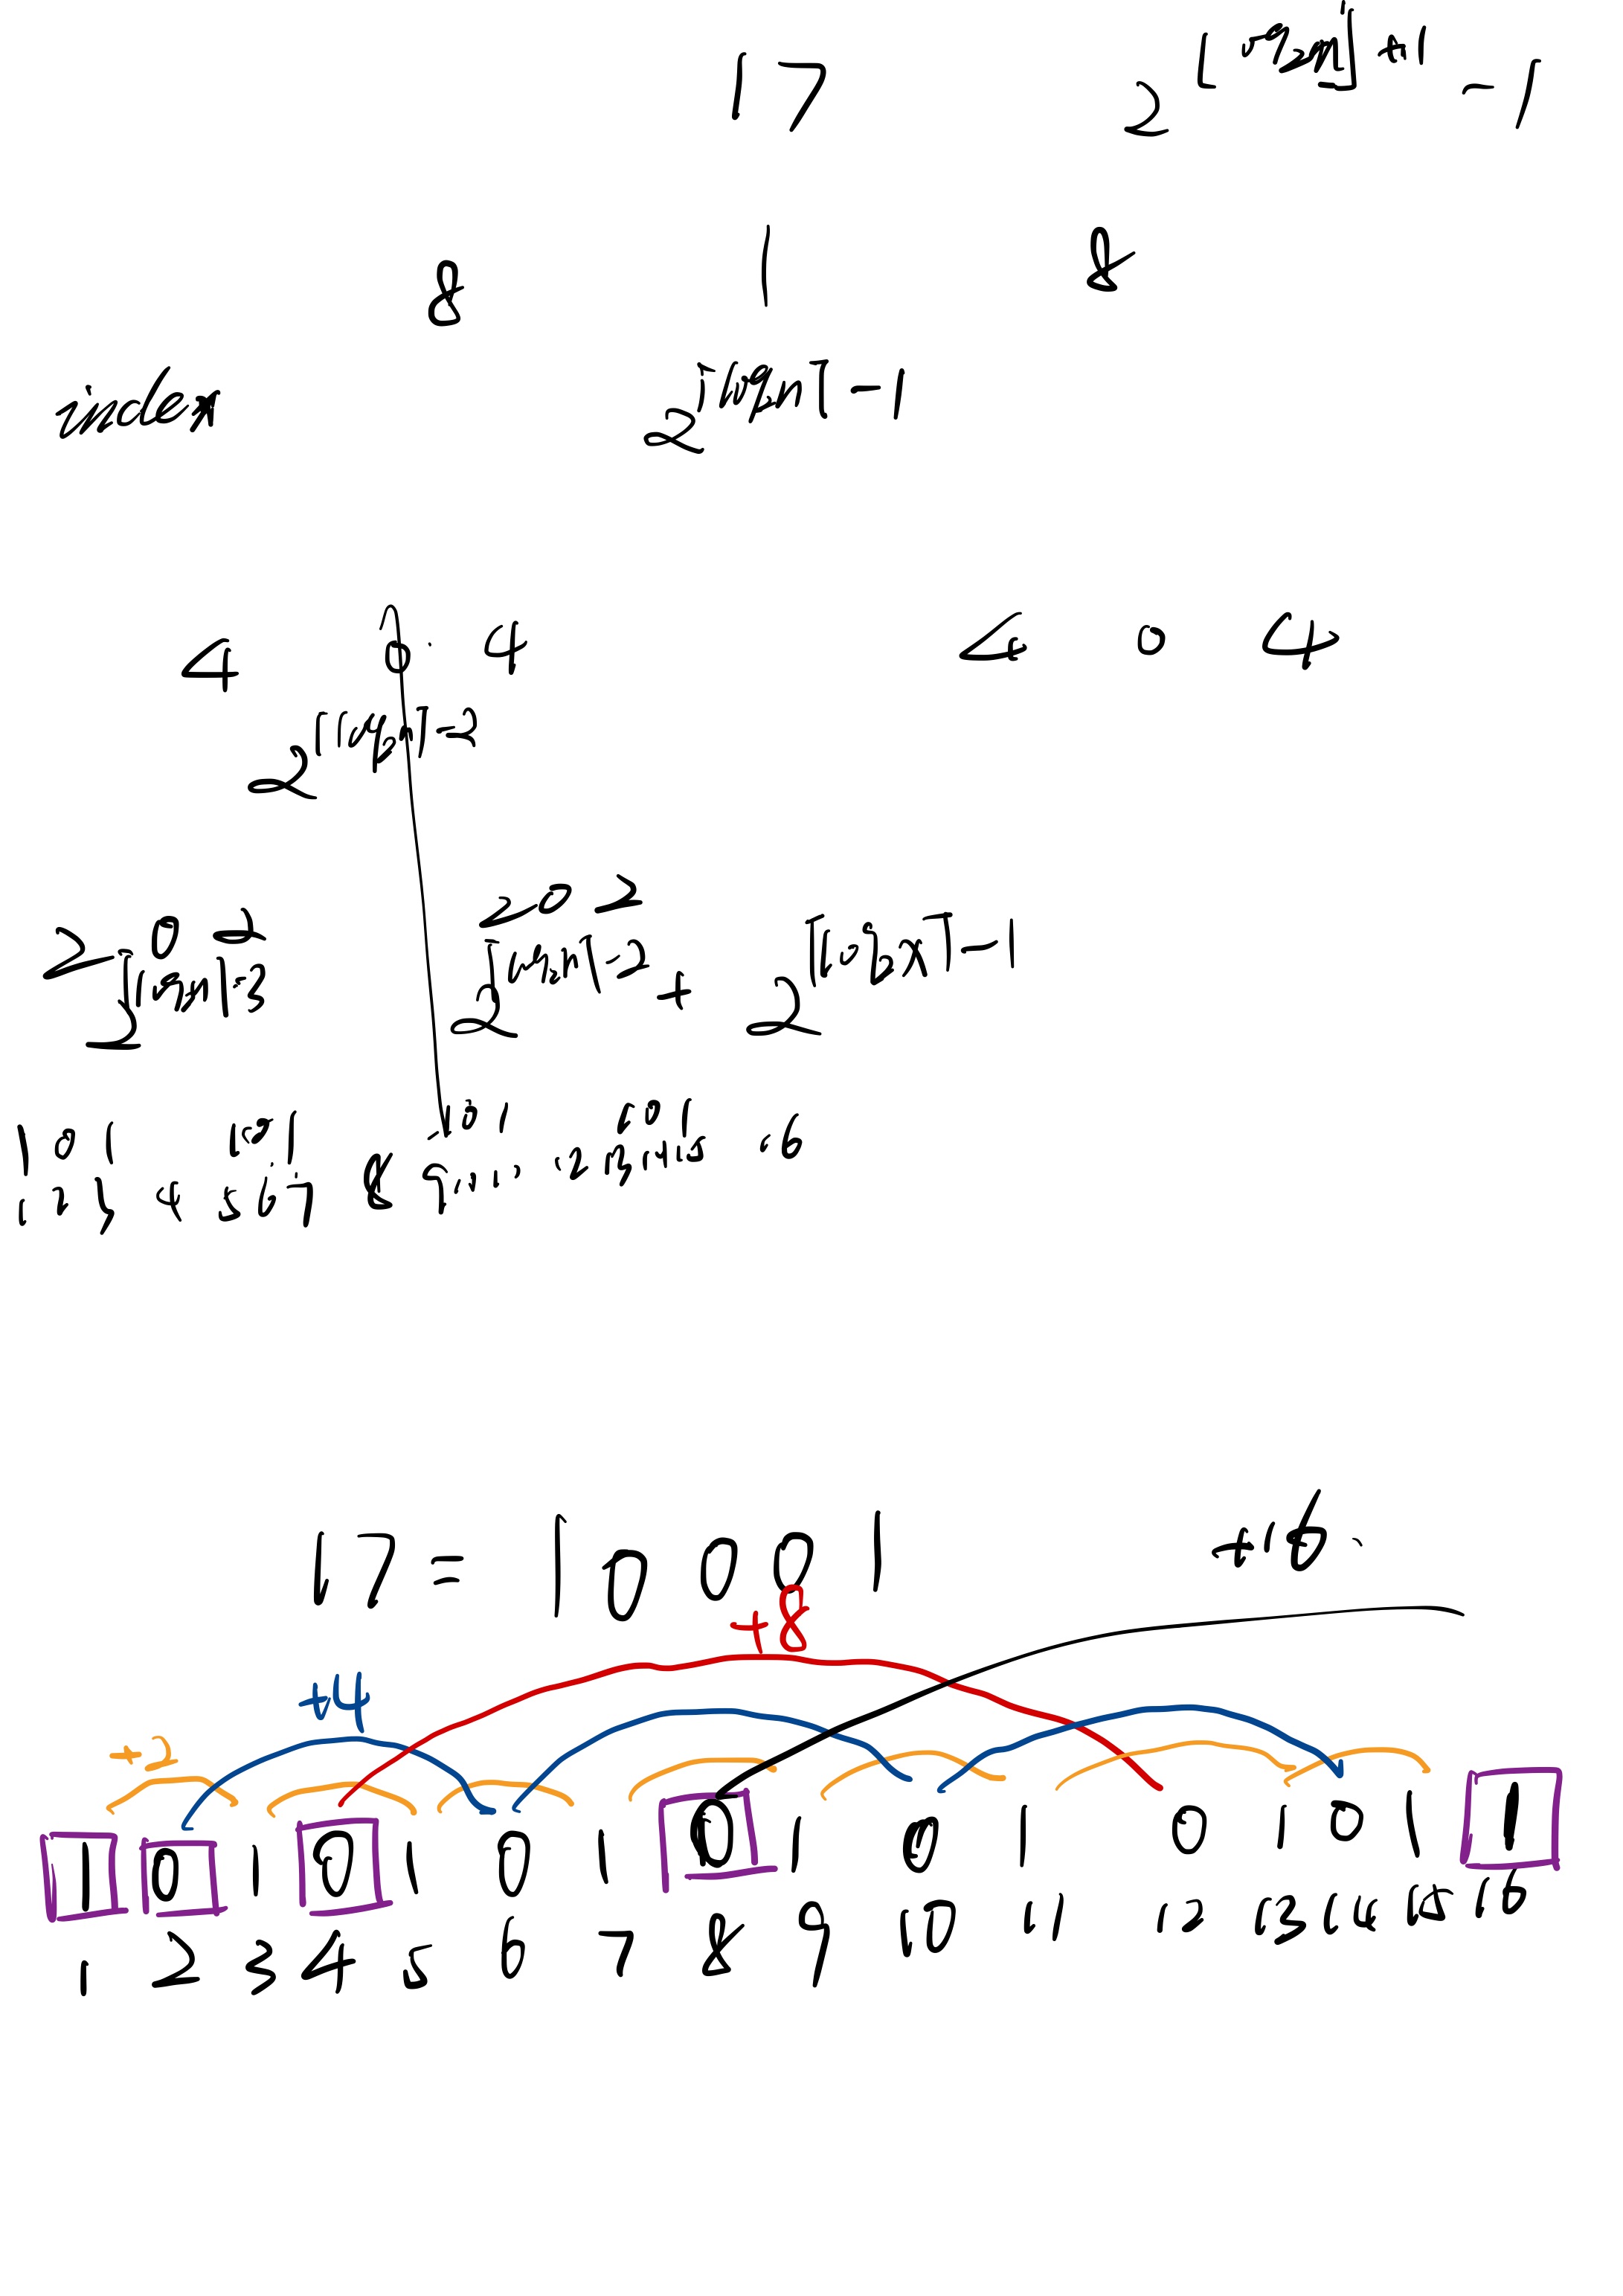 17 2^⌊log₂n⌋+1 - 1
8 1 8
index 2^⌈log₂n⌉-1
4 0 4 4 0 4
2^⌈log₂n⌉-2
2 0 2 2 0 2
2^⌈log₂n⌉-3 2^⌈log₂n⌉-2 + 2^⌈log₂n⌉-1
1 0 1 1 0 1 1 0 1 1 0 1
1 2 3 4 5 6 7 8 9 10 11 12 13 14 15 16
17 = 1 0 0 0 1 +16
+8
+4
+2
1 0 1 0 1 0 1 0 1 0 1 0 1 0 1 1
1 2 3 4 5 6 7 8 9 10 11 12 13 14 15 16